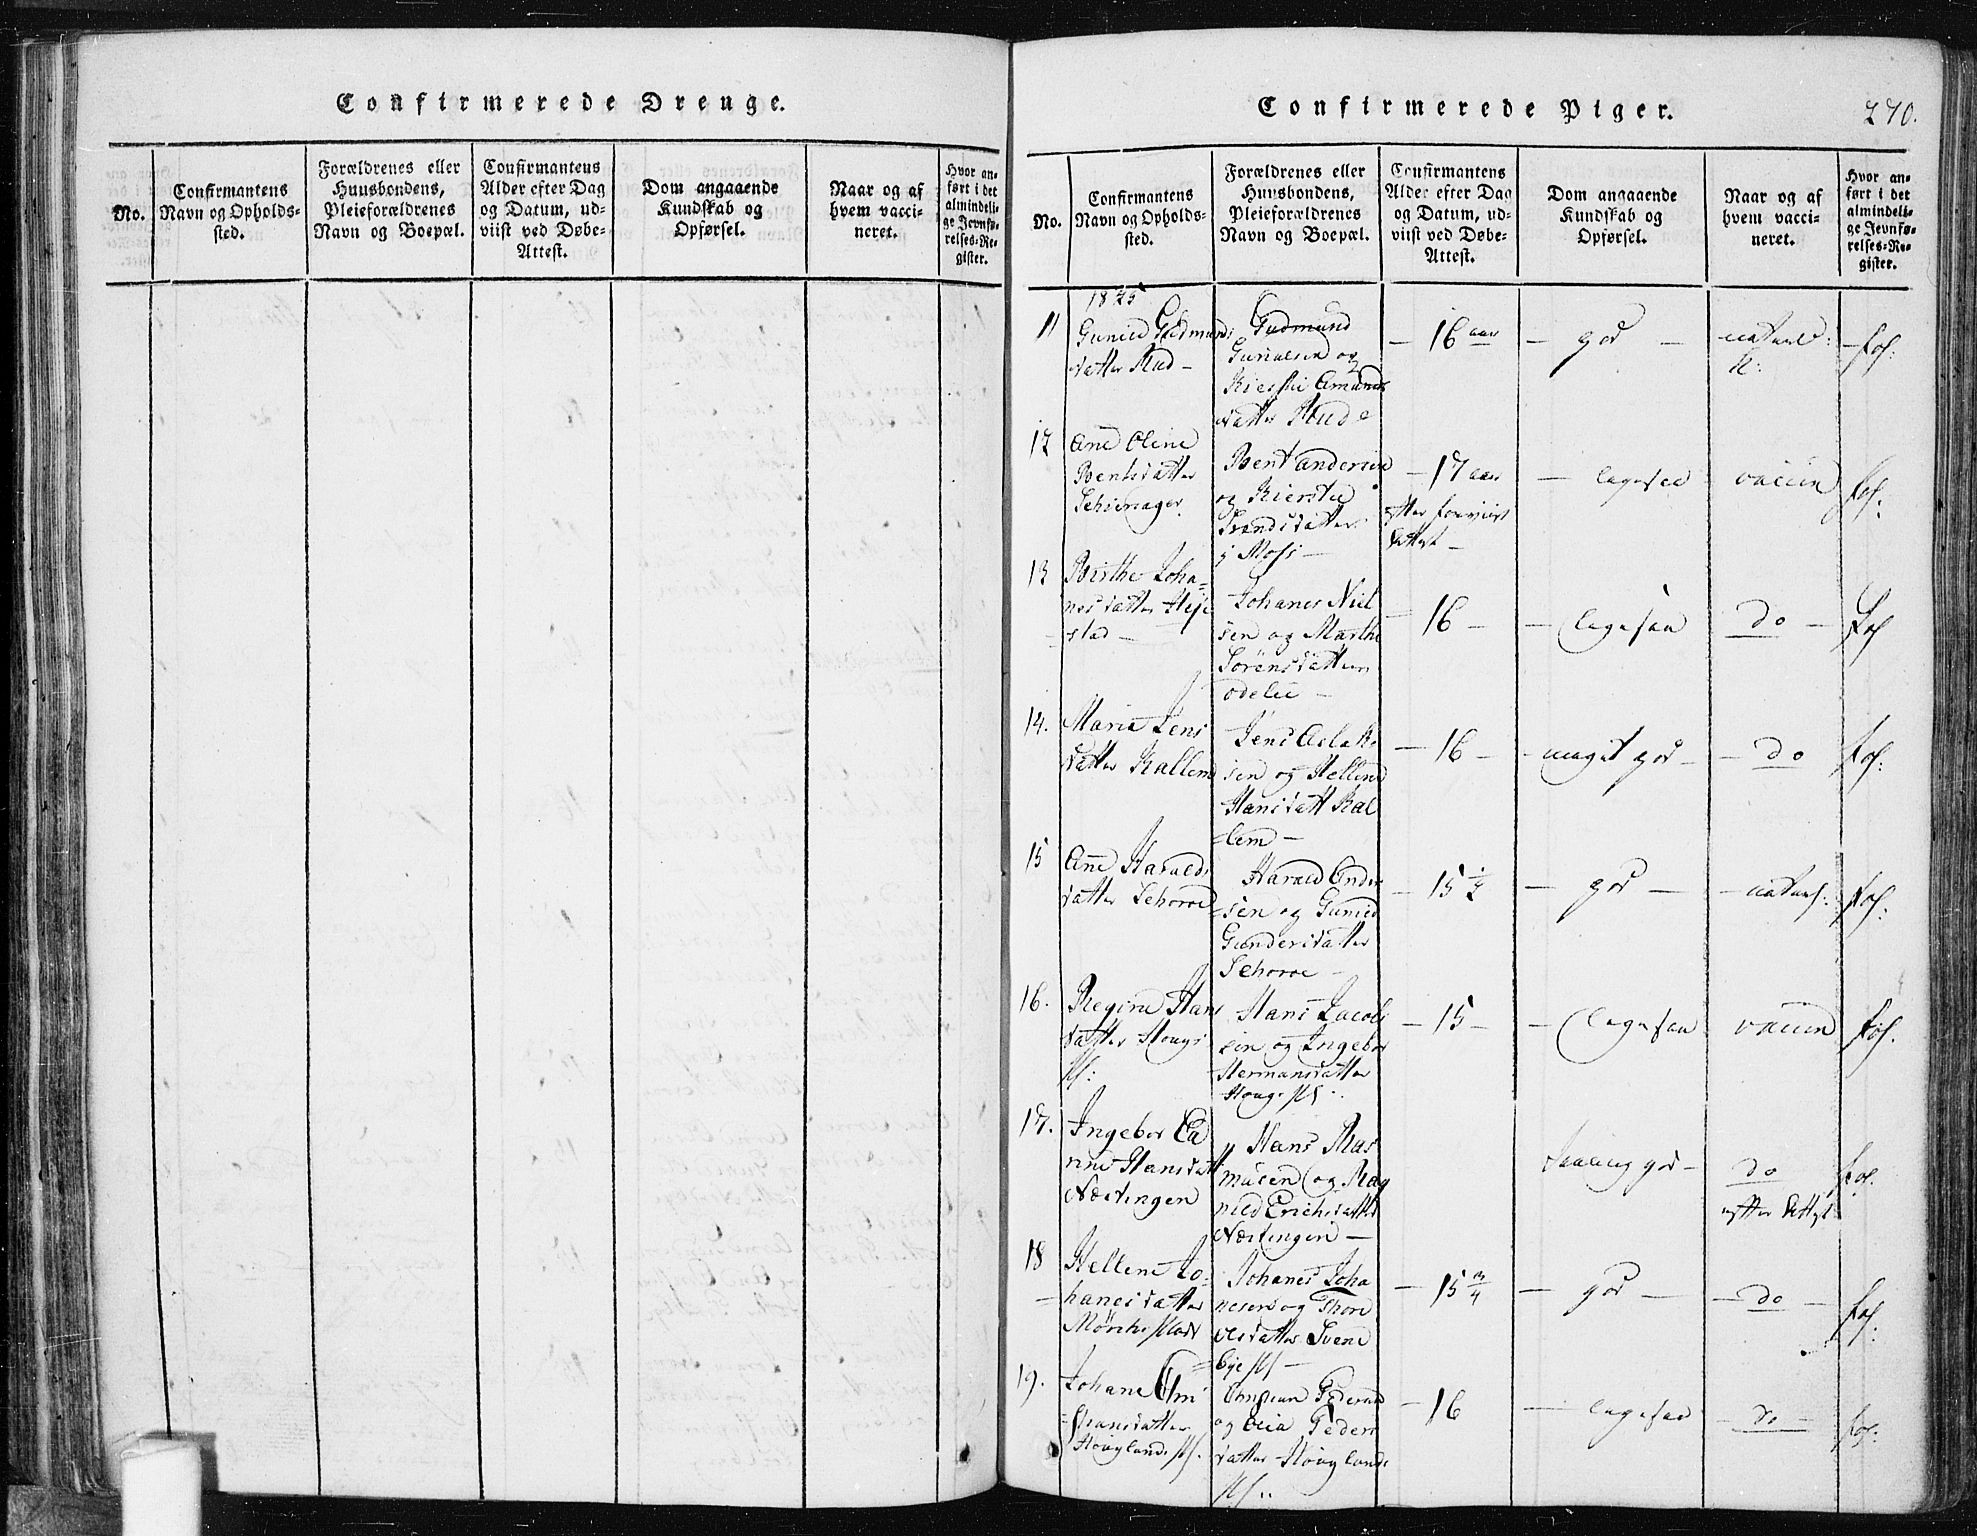 Confirmerede Drenge.
No.
Confirmantens
Navn og Opholds-
sted.
Forældrenes eller
Huusbondens,
Pleieforældrenes
Navn og Boepæl.
Confirmantens
Alder efter Dag
og Datum, ud-
viist ved Døbe-
Attest.
Dom angaaende
Kundskab og
Opførsel.
Naar og af
hvem vacci-
neret.
Hvor an-
ført i det
almindeli-
ge Jevnfø-
relses-Re-
gister.
Confirmerede Piger.
270.
No.
Confirmantens
Navn og Opholds-
sted.
Forældrenes eller
Huusbondens,
Pleieforældrenes
Navn og Boepæl.
Confirmantens
Alder efter Dag
og Datum, ud-
viist ved Døbe-
Attest.
Dom angaaende
Kundskab og
Opførsel.
Naar og af
hvem vacci-
neret.
Hvor an-
ført i det
almindeli-
ge Jevnfø-
relses-Re-
gister.
1825
11
Gunild Gudmunds
datter Rud -
Gudmund
og
Amunds
datter Rud
- 16 aar
- god -
naturl:
K:
12
Ane Oline
Bentsdatter
Bent Andersen
og Kierstie
datter
i Moss -
- 17 aar
- ligesaa
vaccin
13
Birthe Joha-
nesdatter
stad -
Johanes Niel
sen og Marthe
Sørensdatter
- 16 -
- ligesaa
do -
14.
Maria Jens
datter Kallem
Jens Aslak
sen og Hellene
Hansdatt Kal
lem -
- 16 -
- meget god -
- do
15
Ane Haralds
datter
Harald Ander
sen og Gunild
Gundersdatter
- 15 1/2
- god -
- naturl:
16.
Regine Hans
datter Houg
Hans Jacob
sen og Ingebor
Hermansdatter
- 15 -
- ligesaa
vaccin
17.
Ingebor Ca
rine Hansdatt
Næstingen
Hans Ras
musen og Rag
nild Erichsdatter
Næstingen -
god -
do
efter Attest
18
Hellene Jo-
hanesdatter
Johanes Joha
nesen og Thore
Olsdatter Svene
bye
- 15 3/4
- god -
- do -
19.
Johane Chri
stiansdatter
Houglands
Christian Pedersen
og Peders
datter Houglands
- 16
- ligesaa
- do -